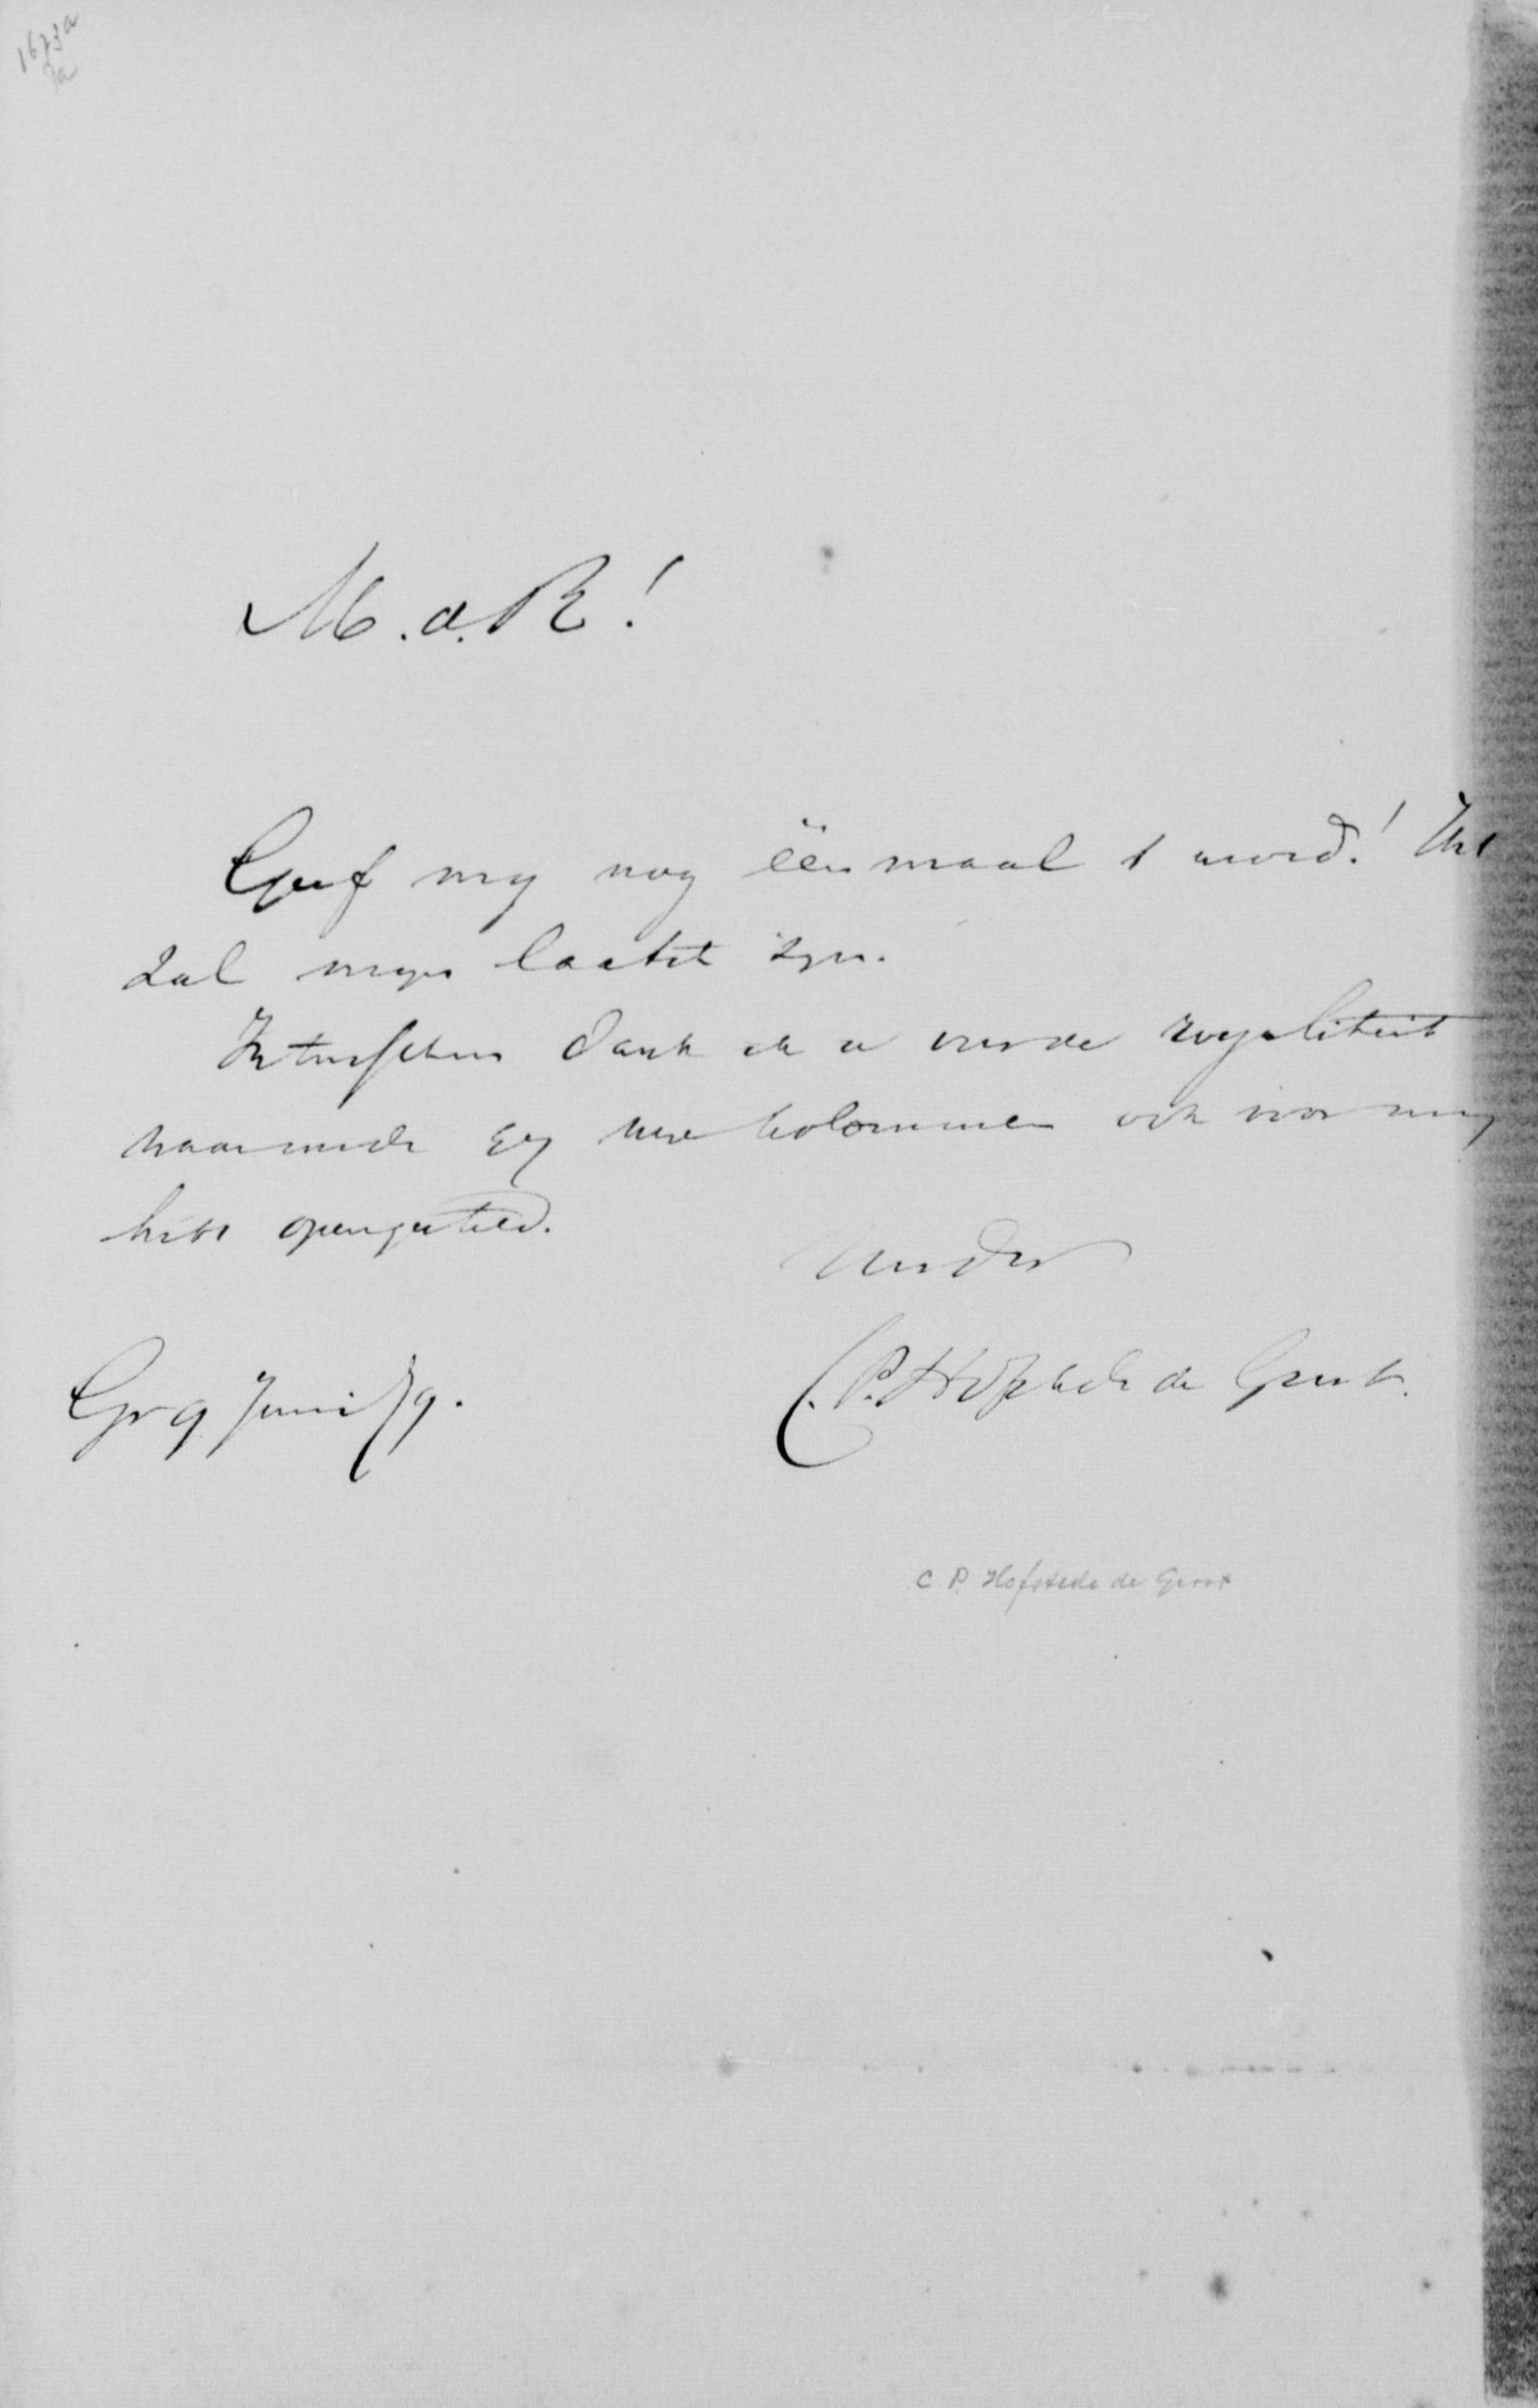 1673a
M.d.R!
Geef my nog ëën maal t woord! Het
zal myn laatste zyn.
Intusschen dank ik u voor de royaliteit
waarmede gy uwe kolommen ook voor my
hebt opengesteld.
Gr 9 Juni 79.
C.P. Hofstede de Groot.
C P. Hofstede de Groot